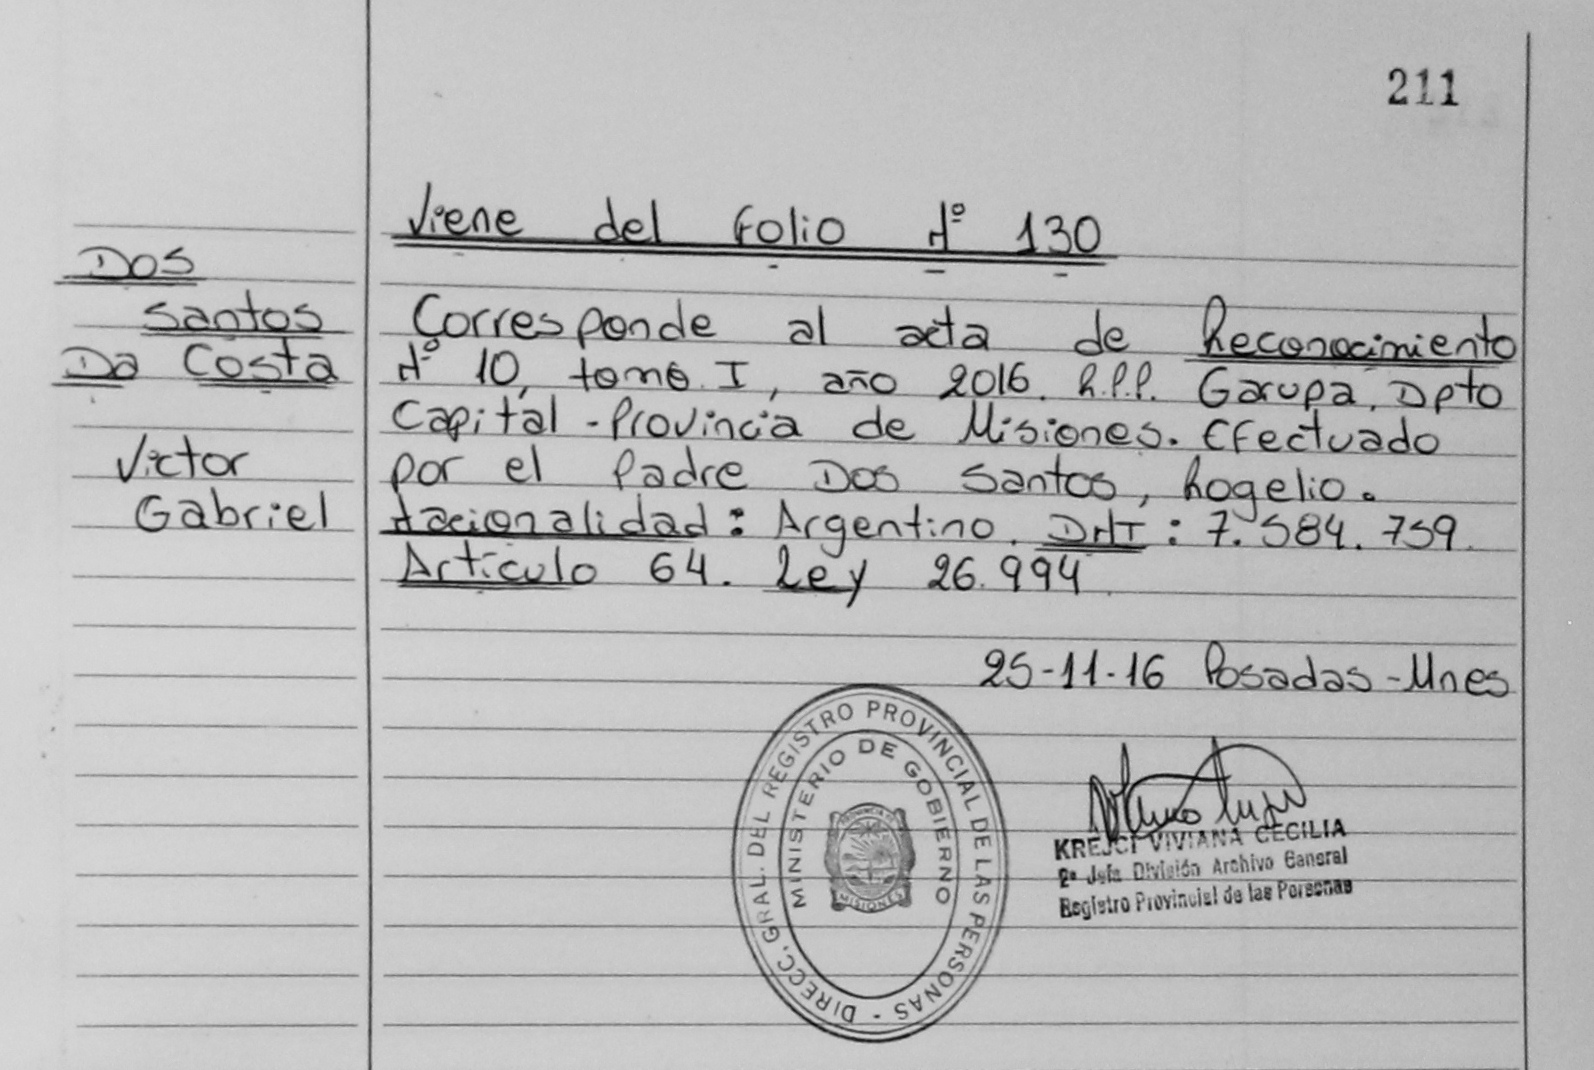 211
Viene del Folio Nº 130
Dos
Santos
Da Costa
Victor
Gabriel
Corresponde al acta de Reconocimiento
Nº 10, tomo I, año 2016. R.P.P. Garupa, Dpto
Capital - Provincia de Misiones. Efectuado
por el Padre Dos Santos, Rogelio.
Nacionalidad: Argentino. DNI: 7.584.759.
Artículo 64. Ley 26.994
25-11-16 Posadas - Mnes
DIRECC. GRAL. DEL REGISTRO PROVINCIAL DE LAS PERSONAS -
MINISTERIO DE GOBIERNO
MISIONES
KREJCI VIVIANA CECILIA
2º Jefa División Archivo General
Registro Provincial de las Personas